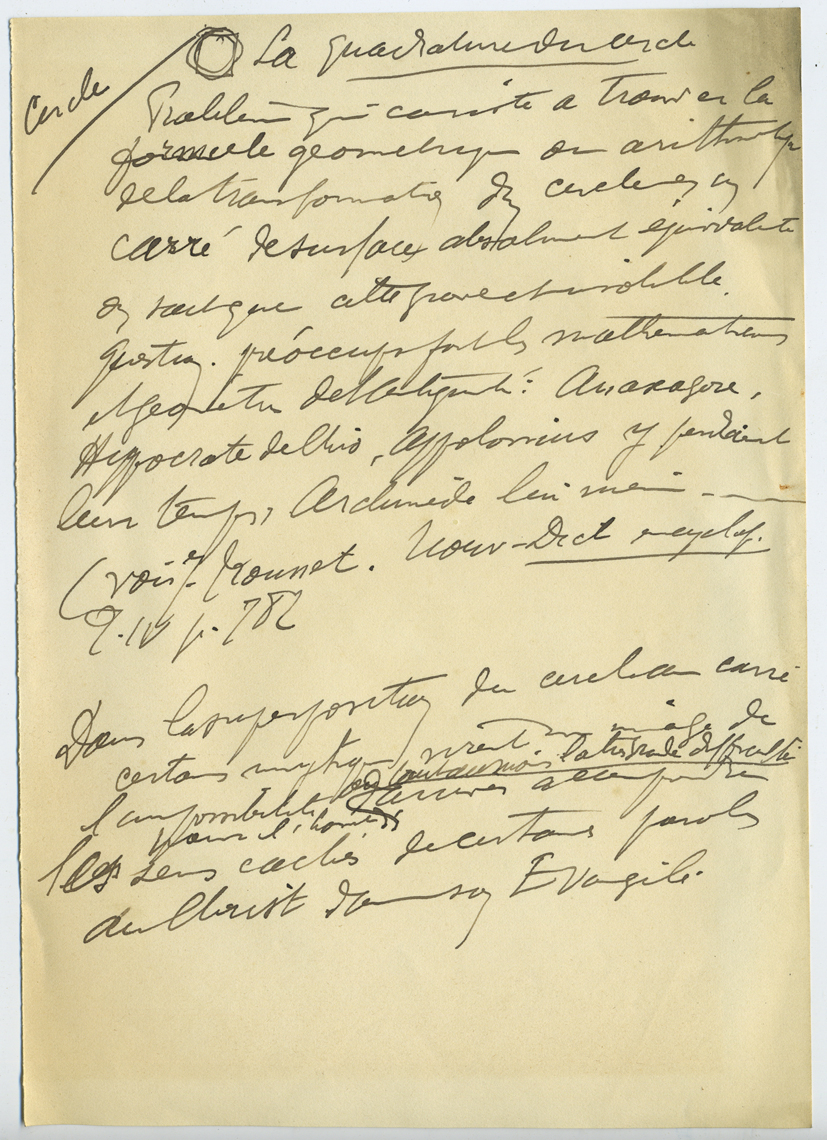 Cercle
La quadrature du cercle
Problème qui consiste a trouver la
formule geometrique ou arithmetique
de la transformation du cercle en un
carré de surface absolument équivalente
on sait que cette grave et insoluble
question. préoccupa fort les mathematiciens
et geometres de l'Antiquité: Anaxagore,
Hyppocrate de Chio, Appolonius y perdirent
leur temps, Archimède lui meme
(voir Trousset. Nouv-Dict encyclop.
T. IV p. 782
Dans la superposition du cercle au carré
certains mystiques virent une image de
ou tout au moins la très grande difficulté
l'impossibilité d'arriver a comprendre
pour l'homme
les sens cachés de certaines paroles
du Christ dans son Evangile.